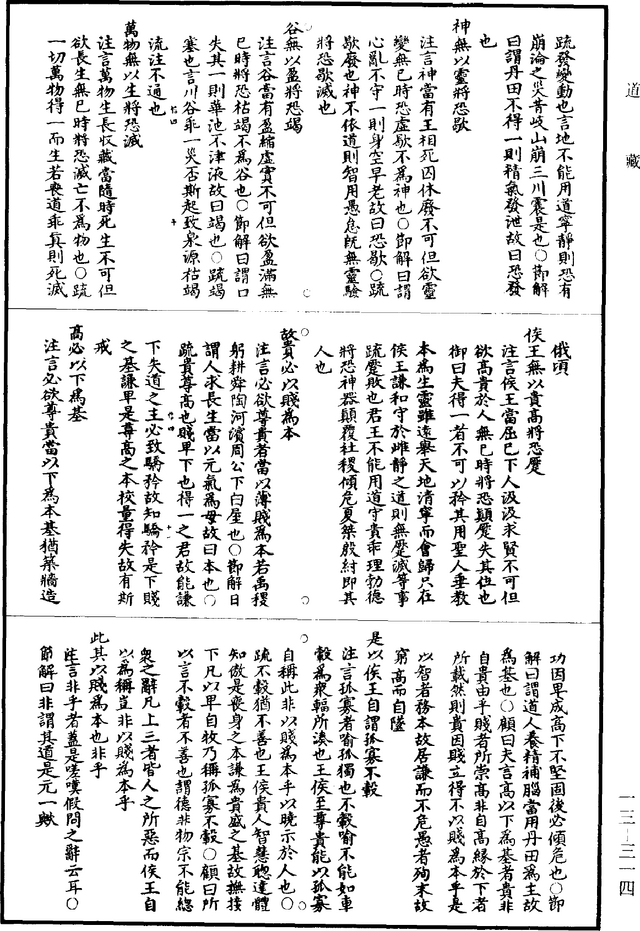 道藏
疏發變動也言地不能用道寧靜則恐有
崩淪之災昔岐山崩三川震是也○節解
曰謂丹田不得一則精氣發泄故曰恐發
也
神無以靈將恐歇
注言神當有王相死囚休廢不可但欲靈
變無已時將恐虛歇不為神也○節解曰謂
心亂不守一則身空早老故曰恐歇○疏
歇廢也神不依道則智用愚怠旣無靈驗
將恐歇滅也
谷無以盈將恐竭
注言谷當有盈縮虛實不可但欲盈滿無
已時將恐枯竭不為谷也○節解曰謂口
失其一則華池不津液故曰竭也○疏竭
塞也言川谷乖一災否斯起致泉源枯竭
流注不通也
萬物無以生將恐滅
注言萬物生長收藏當隨時死生不可但
欲長生無已時將恐滅亡不為物也○疏
一切萬物得一而生若喪道乖真則死滅
俄頃
侯王無以貴高將恐蹷
注言侯王當屈已下人汲汲求賢不可但
欲高貴於人無已時將恐顛蹷失其位也
御曰夫得一者不可以矜其用聖人垂教
本為生靈雖遠舉天地清寧而會歸只在
侯王謙和守於雌靜之道則無蹷滅等事
疏蹷敗也君王不能用道守貴乖理勃德
將恐神器顛覆社稷傾危夏桀殷紂即其
人也
故貴必以賤為本
注言必欲尊貴者當以薄賤為本若禹稷
躬耕舜陶河濱周公下白屋也○節解曰
謂人求長生當以元氣為母故曰本也○
疏貴尊高也賤卑下也得一之君故能謙
下失道之主必致驕矜故知驕矜是下賤
之基謙卑是尊高之本校量得失故有斯
戒
高必以下為基
注言必欲尊貴當以下為本基猶築牆造
功因卑成高下不堅固後必傾危也○節
解曰謂道人養精補腦當用丹田為主故
為基也○顧曰夫言高以下為基者貴非
自貴由乎賤者所崇高非自高緣於下者
所載然則貴因賤立得不以賤為本乎是
以智者務本故居謙而不危愚者殉末故
窮高而自隆
是以侯王自謂孤寡不轂
注言孤寡者喻孤獨也不轂喻不能如車
轂為衆輻所湊也王侯至尊貴能以孤寡
自稱此非以賤為本乎以曉示於人也○
疏不轂猶不善也王侯貴人智慧聰達體
知傲是喪身之本謙為貴盛之基故撫接
下凡以卑自牧乃稱孤寡不轂○顧曰所
以言不轂者不善也謂德非物宗不能總
衆之辭凡上三者皆人之所惡而侯王自
以為稱豈非以賤為本乎
此其以賤為本也非乎
注言非乎者蓋是嗟嘆假問之辭云耳○
節解曰非謂其道是元一歟
一三―三一四